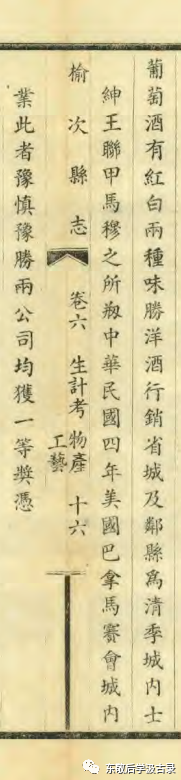 葡萄酒有紅白兩種味勝洋酒行銷省城及鄰縣爲清季城內士
紳王聯甲馬穆之所剏中華民國四年美國巴拿馬賽會城內
榆次縣志 卷六 生計考 物產 工藝 十六
業此者豫慎豫勝兩公司均獲一等獎憑
东敬后学汲古录